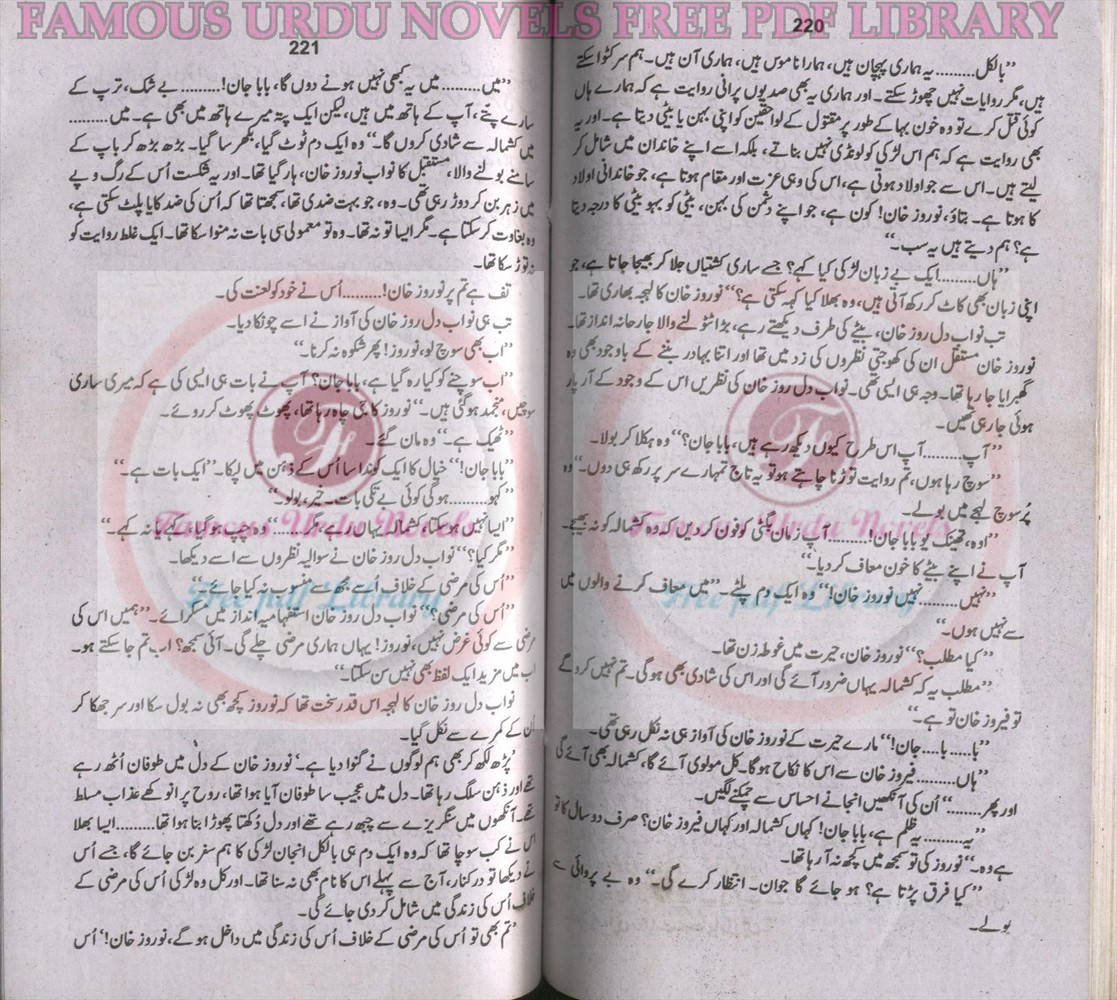 FAMOUS URDU NOVELS FREE PDF LIBRARY
220
”بالکل......... یہ ہماری پہچان ہیں، ہمارا ناموس ہیں، ہماری آن ہیں۔ ہم سر کٹوا سکتے
ہیں، مگر روایات نہیں چھوڑ سکتے۔ اور ہماری یہ بھی صدیوں پرانی روایت ہے کہ ہمارے ہاں
کوئی قتل کرے تو وہ خون بہا کے طور پر مقتول کے لواحقین کو اپنی بہن یا بیٹی دیتا ہے۔ اور یہ
بھی روایت ہے کہ ہم اس لڑکی کو لونڈی نہیں بناتے، بلکہ اسے اپنے خاندان میں شامل کر
لیتے ہیں۔ اس سے جو اولاد ہوتی ہے، اس کی وہی عزت اور مقام ہوتا ہے، جو خاندانی اولاد
کا ہوتا ہے۔ بتاؤ، نوروز خان! کون ہے، جو اپنے دشمن کی بہن، بیٹی کو بہو بیٹی کا درجہ دیتا
ہے؟ ہم دیتے ہیں یہ سب۔“
”ہاں......... ایک بے زبان لڑکی کیا کہے؟ جسے ساری کشتیاں جلا کر بھیجا جاتا ہے، جو
اپنی زبان بھی کاٹ کر رکھ آتی ہیں، وہ بھلا کیا کہہ سکتی ہے؟“ نوروز خان کا لہجہ بھاری تھا۔
تب نواب دل روز خان، بیٹے کی طرف دیکھتے رہے، بڑا ٹٹولنے والا جارحانہ انداز تھا۔
نوروز خان مستقل ان کی کھوجتی نظروں کی زد میں تھا اور اتنا بہادر بننے کے باوجود بھی وہ
گھبرایا جا رہا تھا۔ وجہ ہی ایسی تھی۔ نواب دل روز خان کی نظریں اس کے وجود کے آر پار
ہوئی جا رہی تھیں۔
”آپ......... آپ اس طرح کیوں دیکھ رہے ہیں، بابا جان؟“ وہ ہکلا کر بولا۔
”سوچ رہا ہوں، تم روایت توڑنا چاہتے ہو تو یہ تاج تمہارے سر پر رکھ ہی دوں۔“ وہ
پُرسوچ لہجے میں بولے۔
”اوہ، تھینک یو بابا جان!......... آپ زمان بگٹی کو فون کر دیں کہ وہ کشمالہ کو نہ بھیجے۔
آپ نے اپنے بیٹے کا خون معاف کر دیا۔“
”نہیں......... نہیں نوروز خان!“ وہ ایک دم پلٹے۔ ”میں معاف کرنے والوں میں
سے نہیں ہوں۔“
”کیا مطلب؟“ نوروز خان، حیرت میں غوطہ زن تھا۔
”مطلب یہ کہ کشمالہ یہاں ضرور آئے گی اور اس کی شادی بھی ہو گی۔ تم نہیں کرو گے
تو فیروز خان تو ہے۔“
”با..... با.... جان!“ مارے حیرت کے نوروز خان کی آواز ہی نہ نکل رہی تھی۔
”ہاں......... فیروز خان سے اس کا نکاح ہو گا۔ کل مولوی آئے گا، کشمالہ بھی آئے گی
اور پھر.........“ اُن کی آنکھیں انجانے احساس سے چمکنے لگیں۔
”یہ......... یہ ظلم ہے، بابا جان! کہاں کشمالہ اور کہاں فیروز خان؟ صرف دو سال کا تو
ہے وہ۔“ نوروز کی تو سمجھ میں کچھ نہ آ رہا تھا۔
”کیا فرق پڑتا ہے؟ ہو جائے گا جوان۔ انتظار کرے گی۔“ وہ بے پروائی سے
بولے۔
221
”میں......... میں یہ کبھی نہیں ہونے دوں گا، بابا جان!......... بے شک، ترپ کے
سارے پتے، آپ کے ہاتھ میں ہیں، لیکن ایک پتہ میرے ہاتھ میں بھی ہے۔ میں.........
میں کشمالہ سے شادی کروں گا۔“ وہ ایک دم ٹوٹ گیا، بکھر سا گیا۔ بڑھ بڑھ کر باپ کے
سامنے بولنے والا، مستقبل کا نواب نوروز خان، ہار گیا تھا۔ اور یہ شکست اُس کے رگ و پے
میں زہر بن کر دوڑ رہی تھی۔ وہ، جو بہت ضدی تھا، سمجھتا تھا کہ اُس کی ضد کایا پلٹ سکتی ہے،
وہ بغاوت کر سکتا ہے۔ مگر ایسا تو نہ تھا۔ وہ تو معمولی سی بات نہ منوا سکا تھا۔ ایک غلط روایت کو
نہ توڑ سکا تھا۔
تف ہے تم پر نوروز خان!......... اُس نے خود کو لعنت کی۔
تب ہی نواب دل روز خان کی آواز نے اسے چونکا دیا۔
”اب بھی سوچ لو، نوروز! پھر شکوہ نہ کرنا۔“
”اب سوچنے کو کیا رہ گیا ہے، بابا جان؟ آپ نے بات ہی ایسی کی ہے کہ میری ساری
سوچیں، منجمد ہو گئی ہیں۔“ نوروز کا جی چاہ رہا تھا، پھوٹ پھوٹ کر روئے۔
”ٹھیک ہے۔“ وہ مان گئے۔
”بابا جان!“ خیال کا ایک کوندا سا اُس کے ذہن میں لپکا۔ ”ایک بات ہے۔“
”کہو......... ہو گی کوئی بے تکی بات۔ خیر، بولو۔“
”ایسا نہیں ہو سکتا کشمالہ یہاں رہے، مگر.........“ وہ چپ ہو گیا، کہے یا نہ کہے۔
”مگر کیا؟“ نواب دل روز خان نے سوالیہ نظروں سے اسے دیکھا۔
”اُس کی مرضی کے خلاف اُسے مجھ سے منسوب نہ کیا جائے۔“
”اُس کی مرضی؟“ نواب دل روز خان استفہامیہ انداز میں مسکرائے۔ ”ہمیں اس کی
مرضی سے کوئی غرض نہیں، نوروز! یہاں ہماری مرضی چلے گی۔ آئی سمجھ؟ اب تم جا سکتے ہو۔
اب میں مزید ایک لفظ بھی نہیں سن سکتا۔“
نواب دل روز خان کا لہجہ اس قدر سخت تھا کہ نوروز کچھ بھی نہ بول سکا اور سر جھکا کر
اُن کے کمرے سے نکل گیا۔
’پڑھ لکھ کر بھی ہم لوگوں نے گنوا دیا ہے۔‘ نوروز خان کے دل میں طوفان اُٹھ رہے
تھے اور ذہن سلگ رہا تھا۔ دل میں عجیب سا طوفان آیا ہوا تھا، روح پر انوکھے عذاب مسلط
تھے۔ آنکھوں میں سنگریزے سے چبھ رہے تھے اور دل دُکھتا پھوڑا بنا ہوا تھا......... ایسا بھلا
اس نے کب سوچا تھا کہ وہ ایک دم ہی بالکل انجان لڑکی کا ہم سفر بن جائے گا، جسے اُس
نے دیکھا تو درکنار، آج سے پہلے اس کا نام بھی نہ سنا تھا۔ اور کل وہ لڑکی اُس کی مرضی کے
خلاف اُس کی زندگی میں شامل کر دی جائے گی۔
’تم بھی تو اُس کی مرضی کے خلاف اُس کی زندگی میں داخل ہو گے، نوروز خان!‘ اُس
Famous Urdu Novels
Free pdf Library
Famous Urdu Novels
Free pdf Library